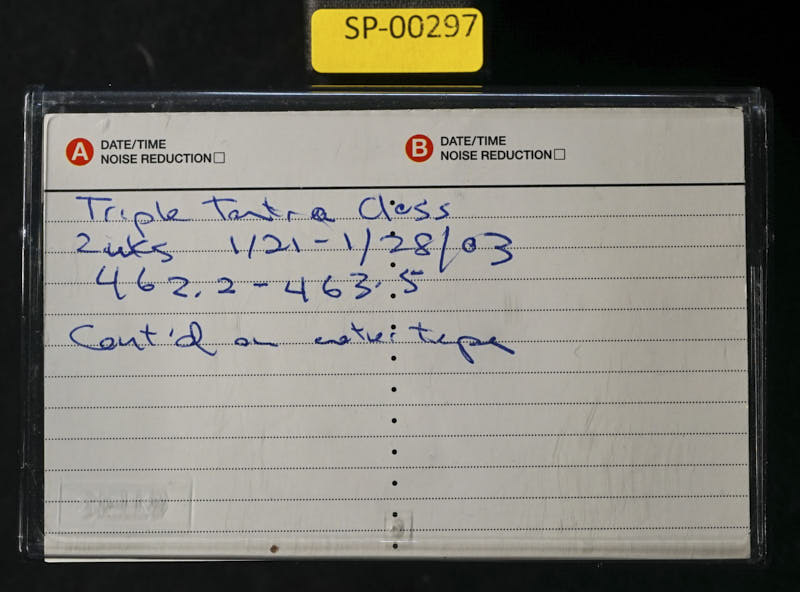 SP-00297
A DATE/TIME
NOISE REDUCTION
B DATE/TIME
NOISE REDUCTION
Triple Tantra Class
2wks 1/21-1/28/03
462.2-463.5
Cont'd on tape